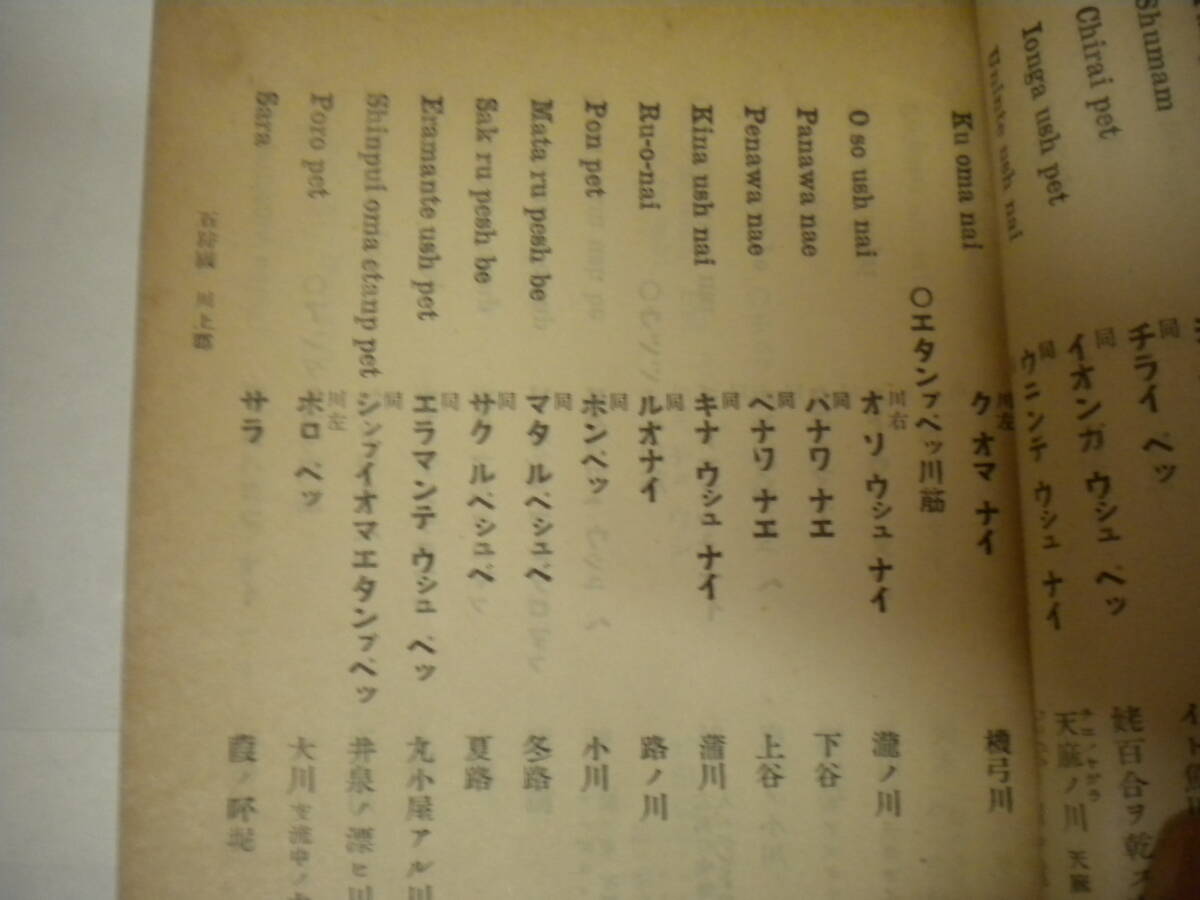 Shumam
Chirai pet
同
チライ ペッ
Ionga ush pet
同
イオンガ ウシュ ペッ
姥百合ヲ乾ス
ush nai
同
ウニンテ ウシュ ナイ
天麻ノ川 天麻
Ku oma nai
川左
ク オマ ナイ
機弓川
〇エタンプペッ川筋
O so ush nai
川右
オ ソ ウシュ ナイ
瀧ノ川
Panawa nae
同
パナワ ナエ
下谷
Penawa nae
同
ペナワ ナエ
上谷
Kina ush nai
同
キナ ウシュ ナイ
蒲川
Ru-o-nai
同
ルオナイ
路ノ川
Pon pet
同
ポンペッ
小川
Mata ru pesh be
同
マタ ルペシュペ
冬路
Sak ru pesh be
同
サク ルペシュペ
夏路
Eramante ush pet
同
エラマンテ ウシュ ペッ
丸小屋アル川
Shinpui oma etanp pet
同
シンプイオマエタンプペッ
井泉ノ漂ヒ川
Poro pet
川左
ポロ ペッ
大川
Sara
サラ
葭ノ